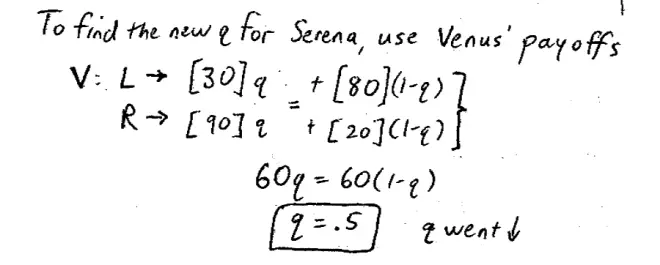 To find the new q for Serena, use Venus' payoffs
V: L → [30] q + [80](1-q) ]
=
R → [90] q + [20](1-q) ]
60q = 60(1-q)
q = .5 q went ↓